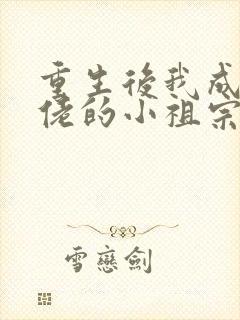 重生後我成
佬的小祖宗
雪戀劍